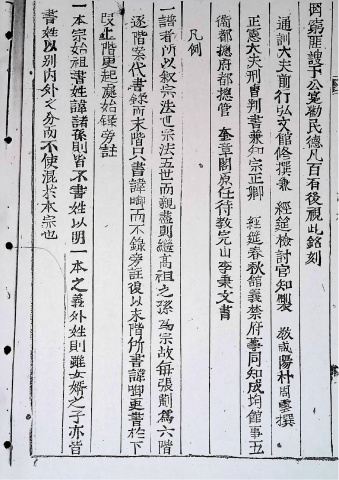 因窮匪諛于公寔勸民德凡百有後視此銘刻
通訓大夫前行弘文館修撰兼 經筵檢討官知製 敎咸陽朴周雲撰
正憲大夫刑曹判書兼知宗正卿 經筵春秋館義禁府事同知成均館事五
衛都摠府都摠管 奎章閣原任待敎完山李秉文書
凡例
一譜者所以叙宗法也宗法五世而親盡則繼高祖之孫爲宗故每張劃爲六階
逐階案代書錄而末階只書諱啣而不錄旁註復以末階所書諱啣更書於下
叚上階更起處始錄旁註
一本宗始祖書姓諱諸孫則皆不書姓以明一本之義外姓則雖女婿之子亦皆
書姓以別內外之分而不使混於本宗也